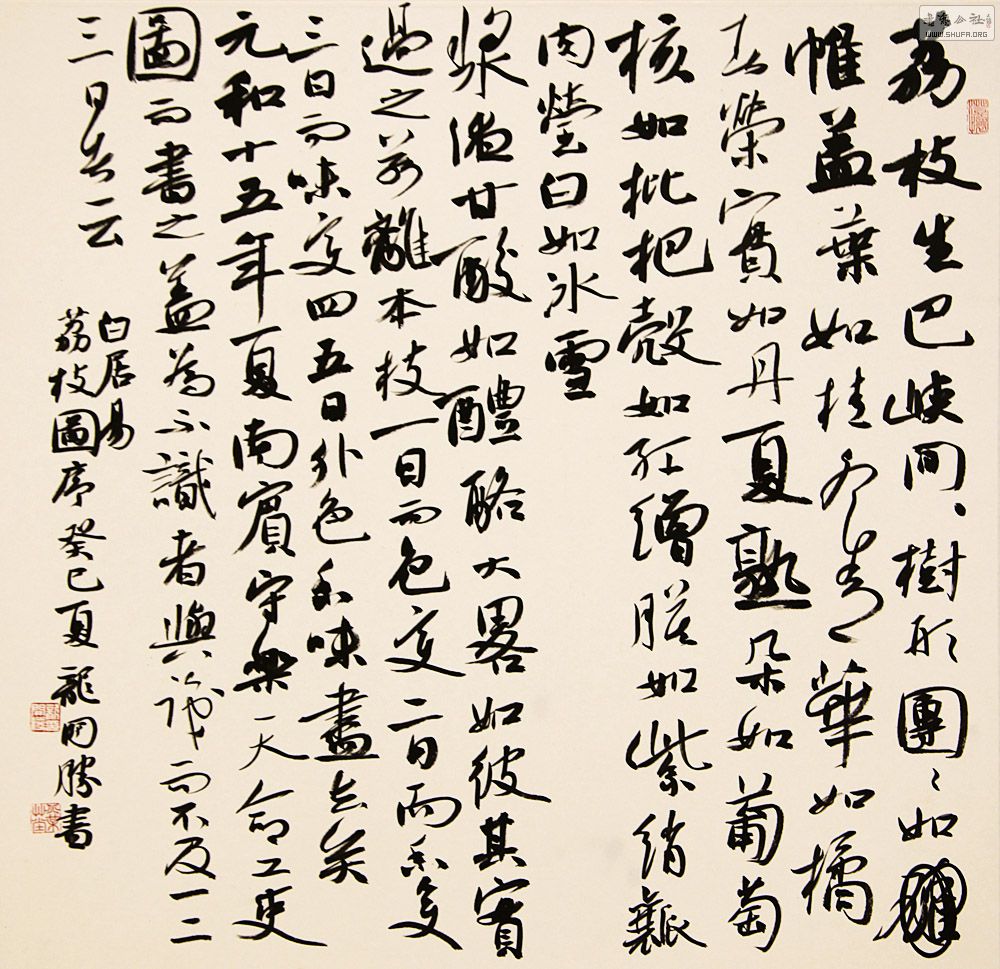 書法公社
WWW.SHUFA.ORG
荔枝生巴峽間、樹形團〻如
帷蓋葉如桂冬青華如橘
春榮實如丹夏熟朵如葡萄
核如枇杷殼如紅繒膜如紫綃瓤
肉瑩白如冰雪
漿液甘酸如醴酪大畧如彼其實
過之若離本枝一日而色变二日而香变
三日而味变四五日外色香味盡去矣
元和十五年夏南賓守樂天命工吏
圖而書之蓋為不識者與識而不及一二
三日者云
白居易
荔枝圖序癸巳夏龍開勝書